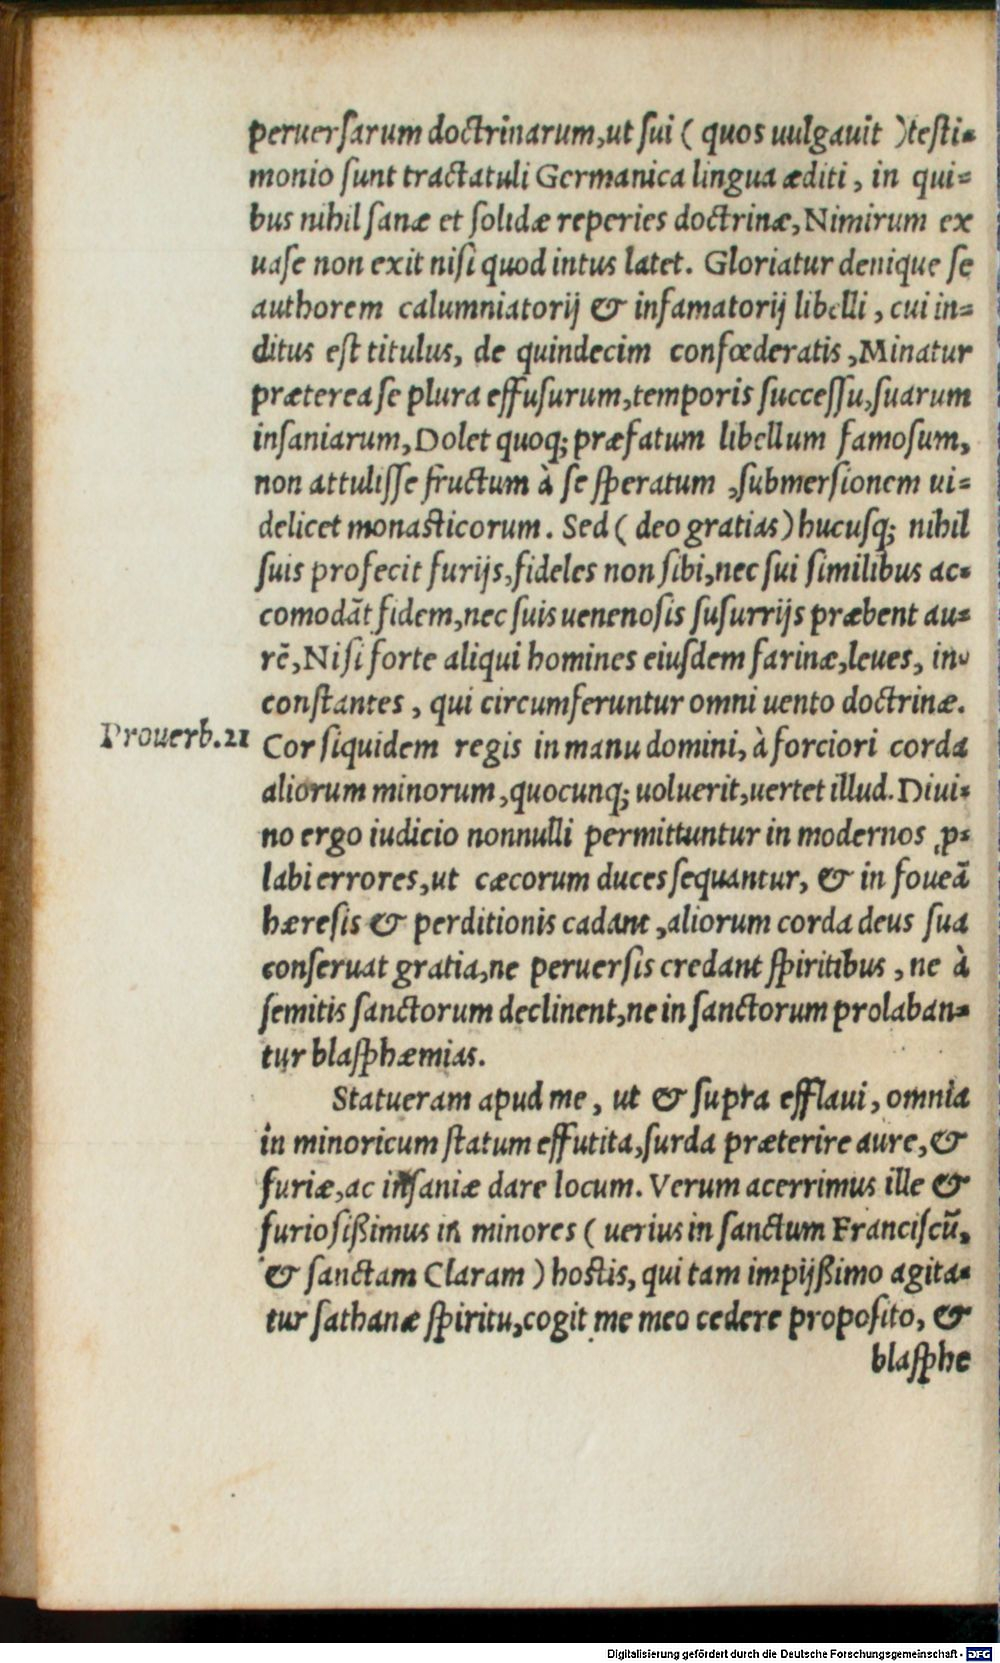 peruersarum doctrinarum,ut sui ( quos uulgauit )testi-
monio sunt tractatuli Germanica lingua æditi , in qui-
bus nihil sanæ et solidæ reperies doctrinæ,Nimirum ex
uase non exit nisi quod intus latet. Gloriatur denique se
authorem calumniatorij & infamatorij libelli , cui in-
ditus est titulus, de quindecim confœderatis ,Minatur
præterea se plura effusurum,temporis successu,suarum
insaniarum,Dolet quoq; præfatum libellum famosum,
non attulisse fructum à se speratum ,submersionem ui-
delicet monasticorum. Sed ( deo gratias) hucusq; nihil
suis profecit furijs,fideles non sibi,nec sui similibus ac-
comodãt fidem,nec suis uenenosis susurrijs præbent au-
rẽ,Nisi forte aliqui homines eiusdem farinæ,leues, in-
constantes , qui circumferuntur omni uento doctrinæ.
Prouerb.21 Cor siquidem regis in manu domini, à forciori corda
aliorum minorum ,quocunq; uoluerit,uertet illud. Diui-
no ergo iudicio nonnulli permittuntur in modernos ꝓ-
labi errores,ut cæcorum duces sequantur, & in foueã
hæresis & perditionis cadant ,aliorum corda deus sua
conseruat gratia,ne peruersis credant spiritibus , ne à
semitis sanctorum declinent,ne in sanctorum prolaban-
tur blasphæmias.
Statueram apud me , ut & supra efflaui , omnia
in minoricum statum effutita,surda præterire aure, &
furiæ,ac insaniæ dare locum. Verum acerrimus ille &
furiosißimus in minores ( uerius in sanctum Franciscũ,
& sanctam Claram ) hostis, qui tam impijßimo agita-
tur sathanæ spiritu,cogit me meo cedere proposito, &
blasphe
Digitalisierung gefördert durch die Deutsche Forschungsgemeinschaft - DFG